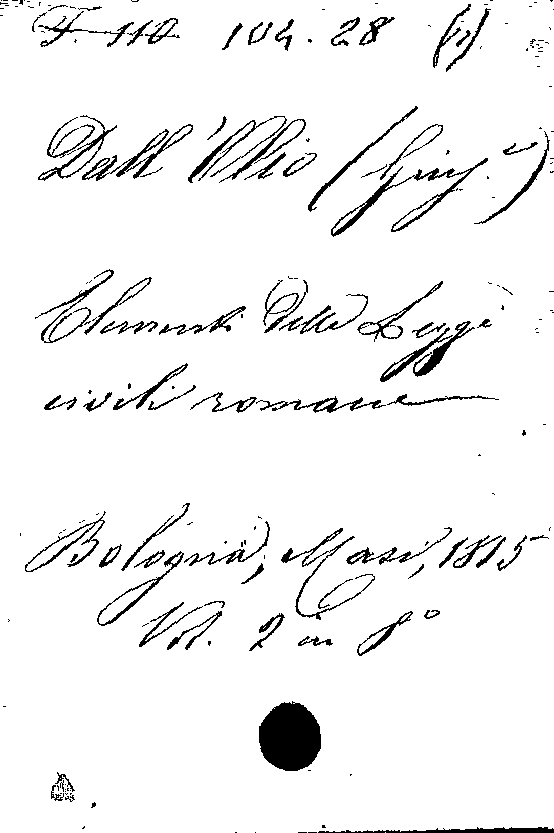 F. 110 104. 28
Dall'Olio (Giu.e)
Elementi delle Leggi
civili romane
Bologna, Masi, 1815
Vol. 2 in 8º